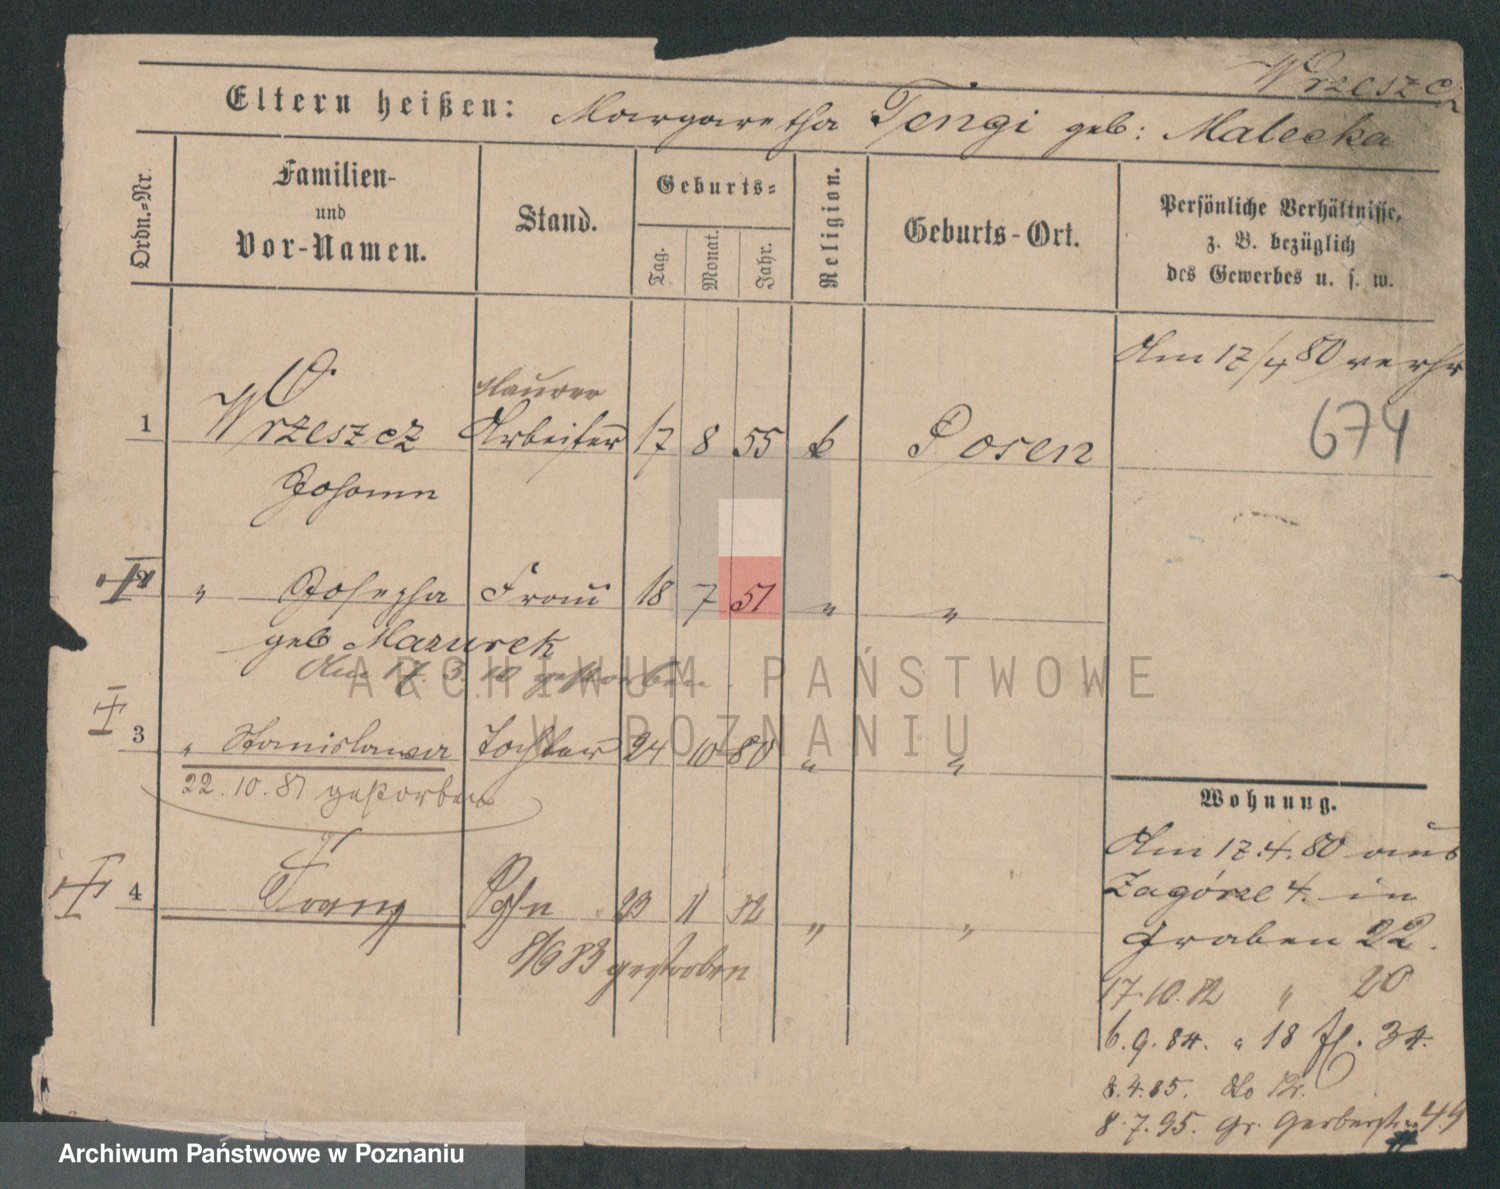 Wrzeszcz
Eltern heißen: Margaretha Tengi geb: Malecka
Ordn.=Nr.
Familien-
und
Vor-Namen.
Stand.
Geburts=
Tag.
Monat.
Jahr.
Religion.
Geburts-Ort.
Persönliche Verhältnisse,
z. B. bezüglich
des Gewerbes u. s. w.
Am 17/4 80 verhr
674
Maurer
1 Wrzeszcz Arbeiter 17 8 55 k Posen
Johann
2 " Josepha Frau 18 7 51 " "
geb Mazurek
Am 17. 3. 10 gestorben.
3 " Stanislawa Tochter 24 10 80 " "
22.10.81 gestorben
4 Franz Sohn 23 11 82 " "
8/9 83 gestorben
Wohnung.
Am 17.4.80 aus
Zagórze 4. in
Graben 22.
17.10.82 " 20
6.9.84. " 18
8.4.85.
8.7.95. Gr. Gerberstr. 49
ARCHIWUM PAŃSTWOWE
W POZNANIU
Archiwum Państwowe w Poznaniu